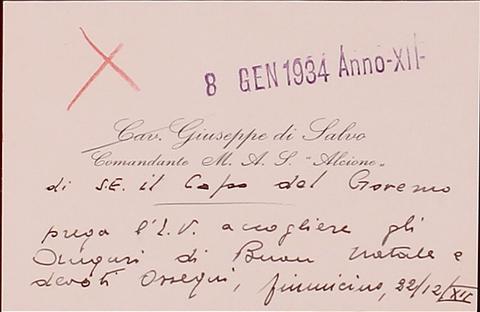 8 GEN 1934 Anno-XII-
Cav. Giuseppe di Salvo
Comandante M. A. S. "Alcione"
di S.E. il Capo del Governo
prega l'E.V. accogliere gli
Auguri di Buon Natale e
devoti ossequi, fiumicino, 22/12/XII